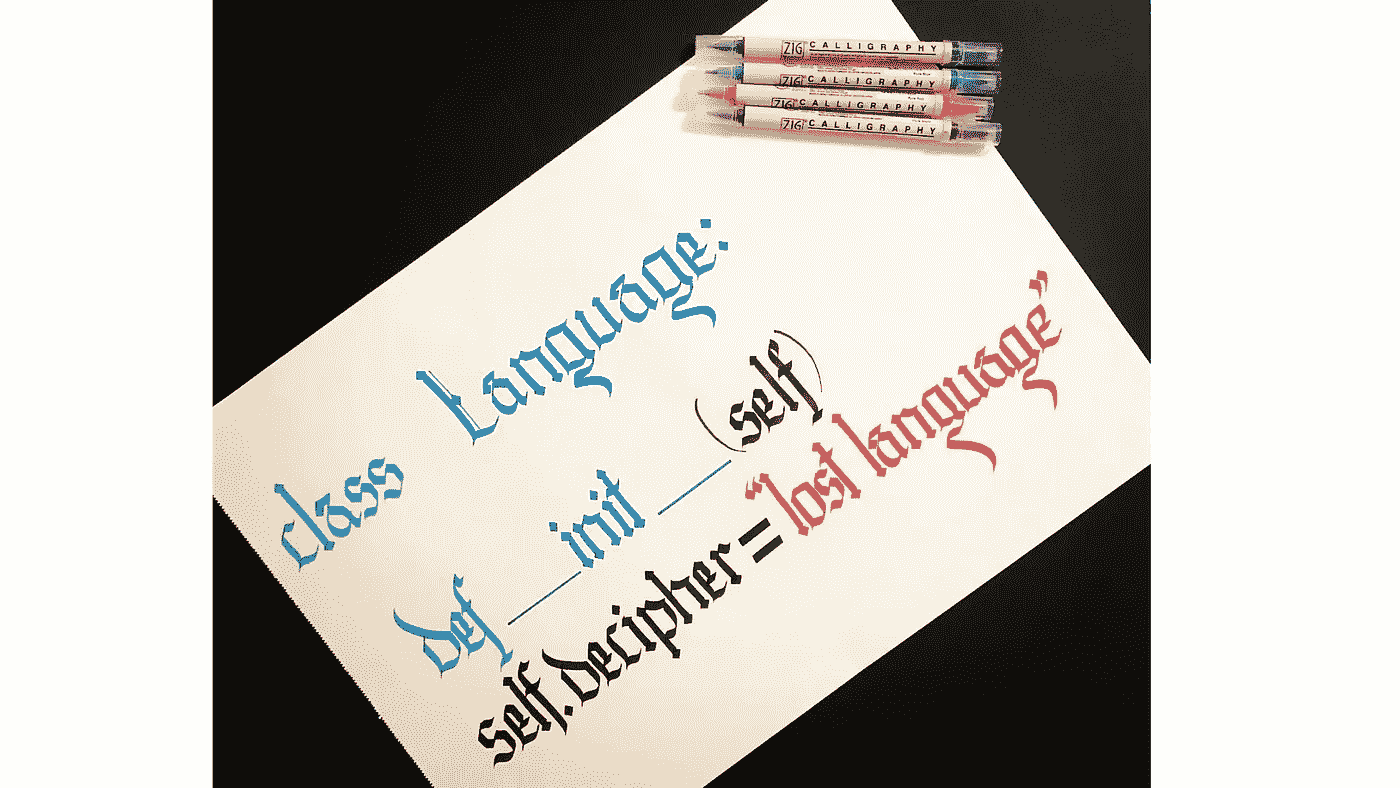 ZIG CALLIGRAPHY
ZIG CALLIGRAPHY
ZIG CALLIGRAPHY
ZIG CALLIGRAPHY
class Language:
def __init__(self)
self.decipher = “lost language”